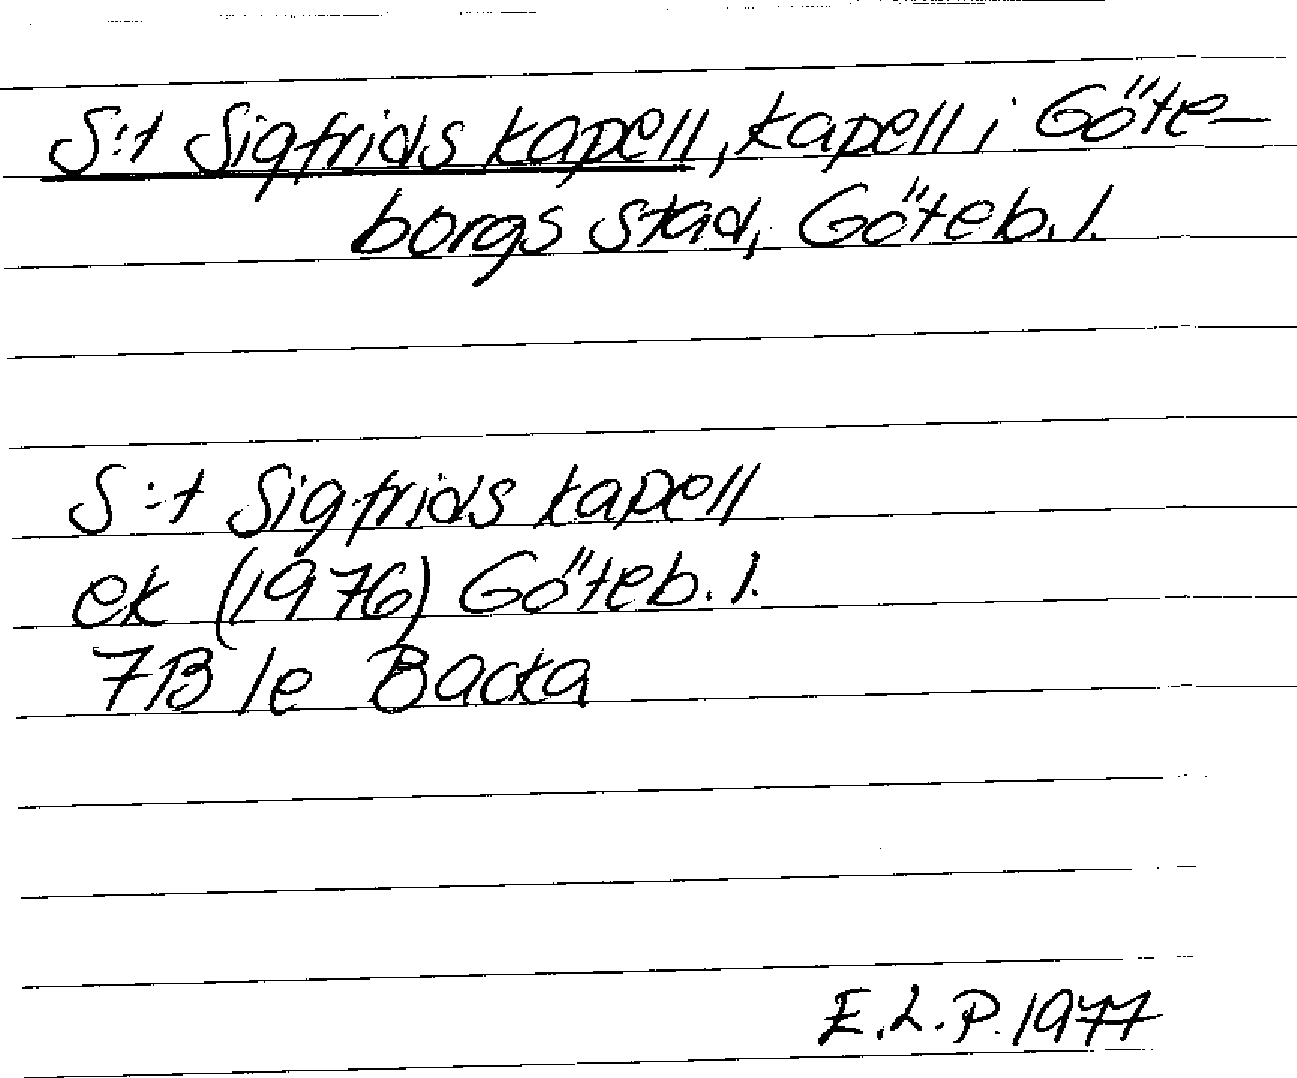 S:t Sigfrids kapell, kapell i Göte-
borgs stad, Göteb. l.
S:t Sigfrids kapell
ek (1976) Göteb. l.
7B 1e Backa
E.L.P. 1977